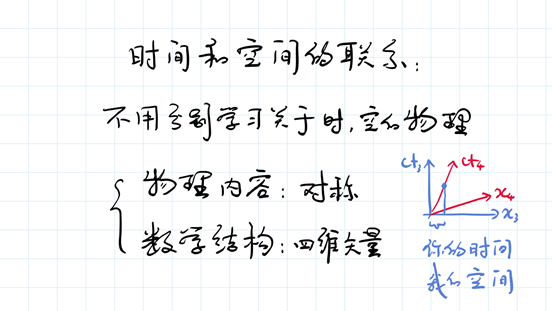 时间和空间的联系：
不用分别学习关于时，空的物理
物理内容：对称
数学结构：四维矢量
ct₃ ct₄
x₄
x₃
你的时间
我的空间